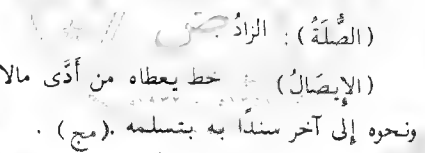 (الصُّلَةُ) : الزادُ .
(الإِيصَالُ) : خط يعطاه من أَدَّى مالا
ونحوه إلى آخر سندًا به بتسلمه . (مج) .